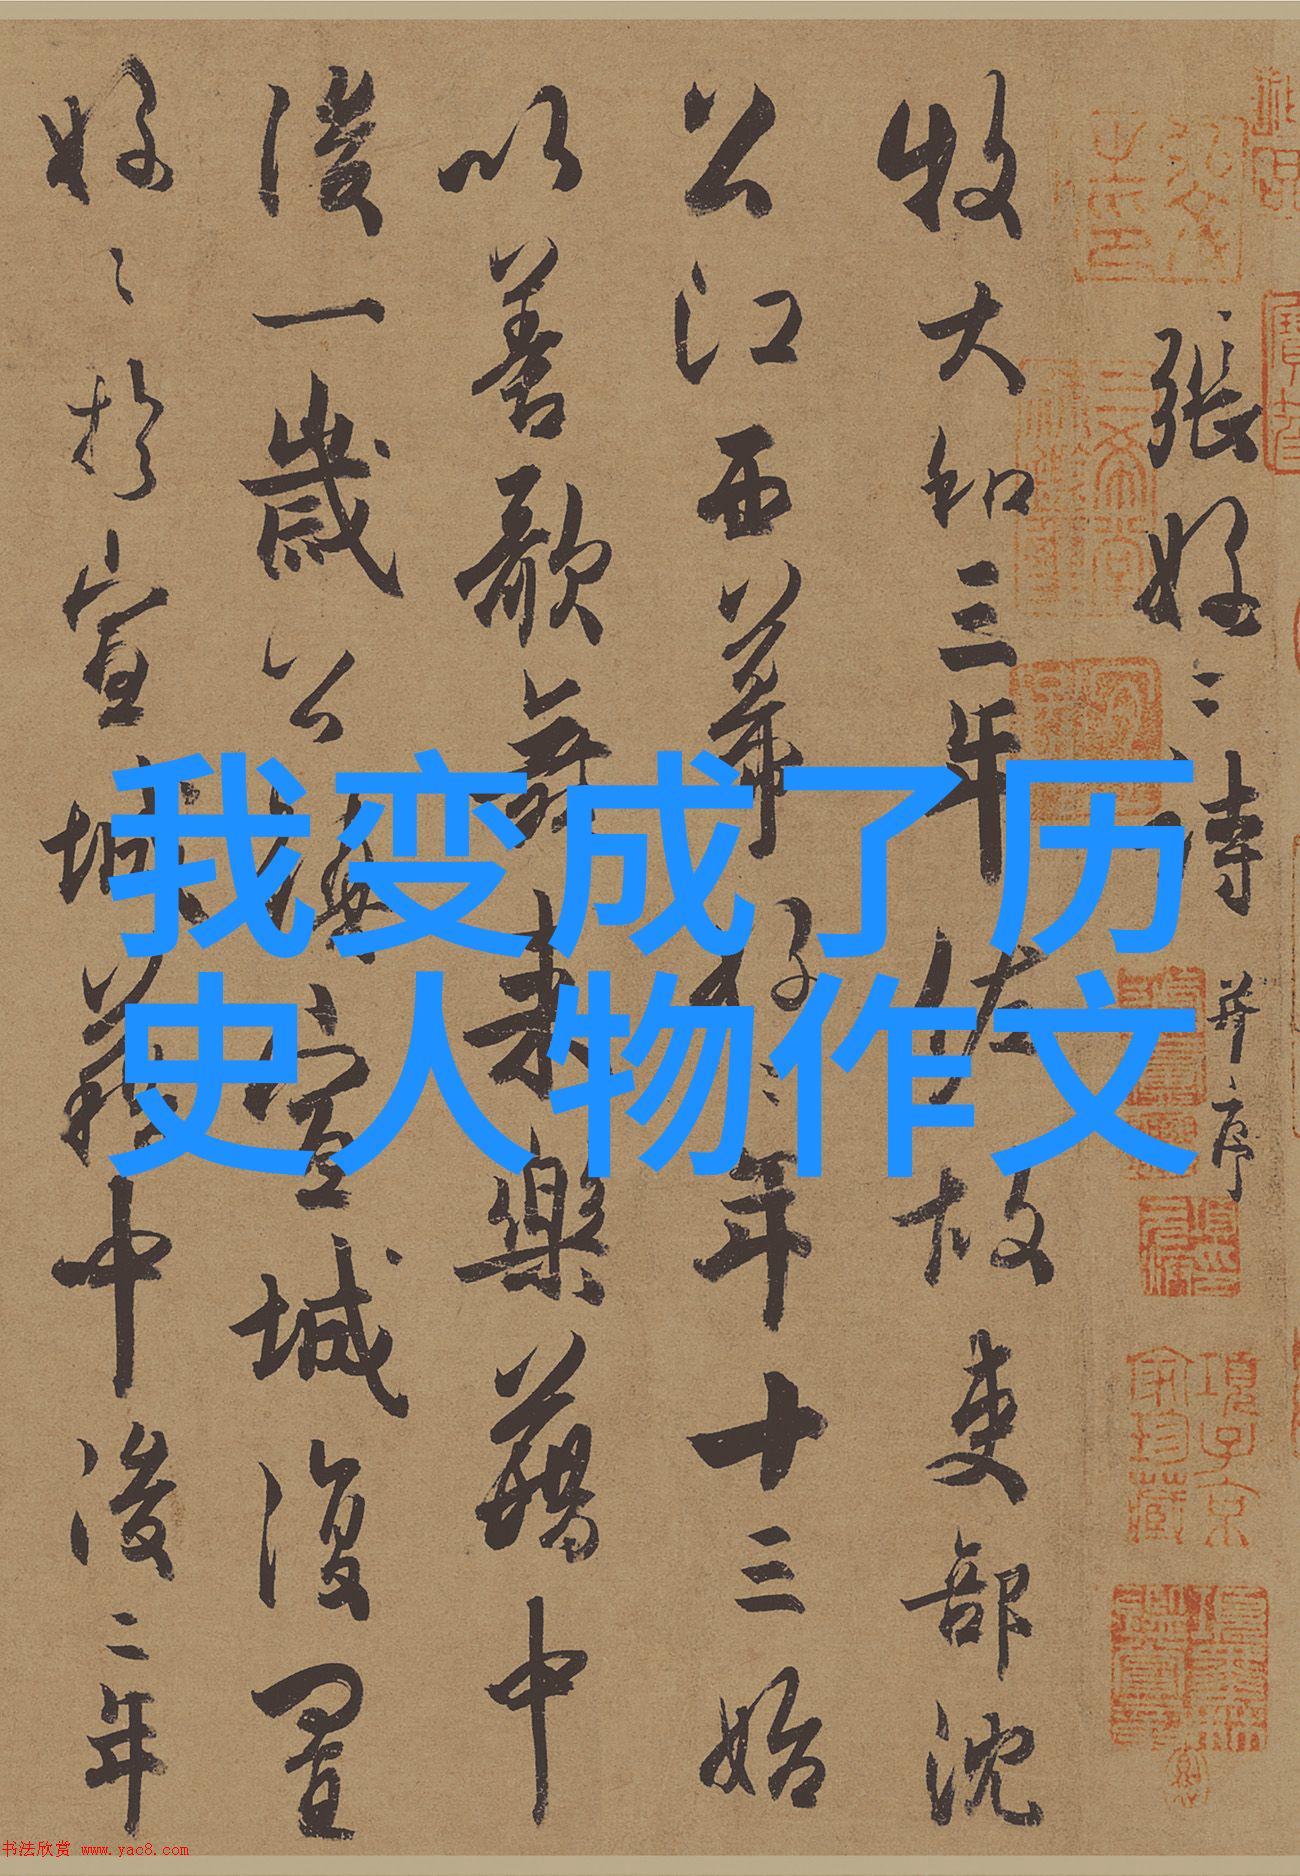 張好〻詩 并序
牧大和三年佐故吏部沈
公江西幕好〻年十三始
以善歌舞来樂籍中
後一歲公鎮宣城復置
好〻於宣城籍中後二年
我变成了历
史人物作文
項子京
家珍藏
书法欣赏 www.yac8.com